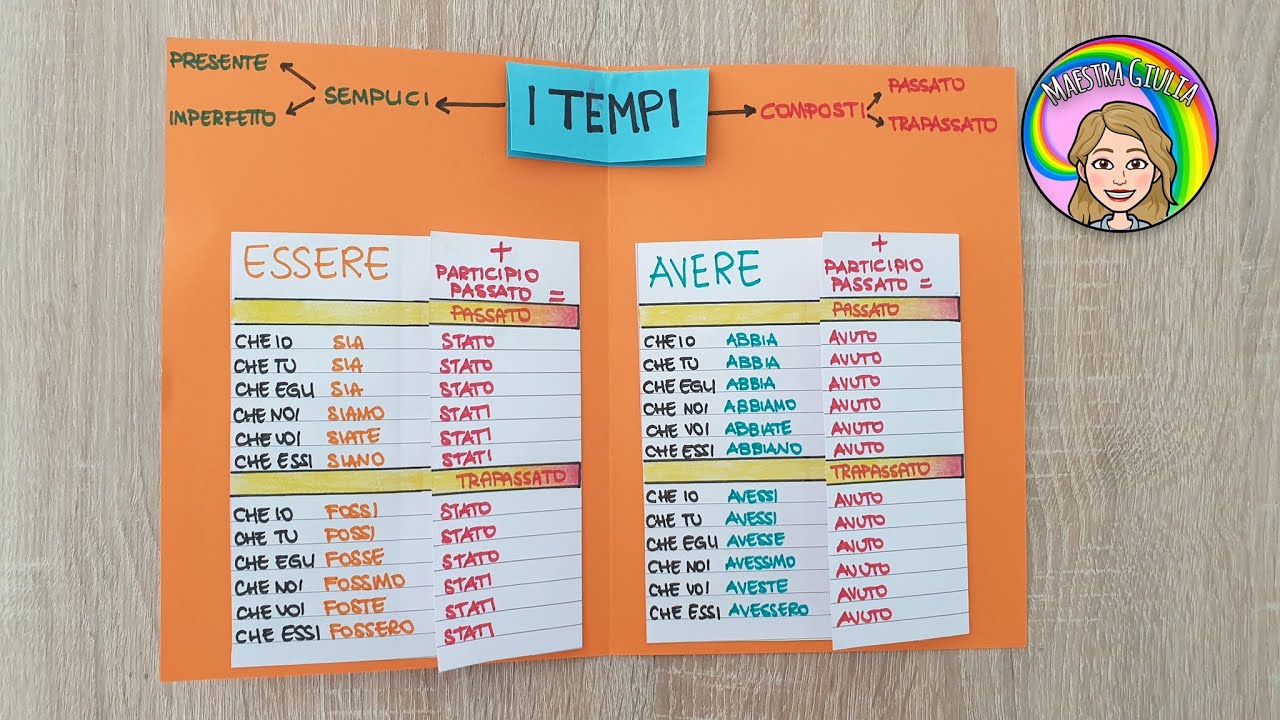 I TEMPI
PRESENTE
SEMPLICI
IMPERFETTO
PASSATO
COMPOSTI
TRAPASSATO
MAESTRA GIULIA
ESSERE
+
PARTICIPIO
PASSATO =
PASSATO
CHE IO SIA STATO
CHE TU SIA STATO
CHE EGLI SIA STATO
CHE NOI SIAMO STATI
CHE VOI SIATE STATI
CHE ESSI SIANO STATI
TRAPASSATO
CHE IO FOSSI STATO
CHE TU FOSSI STATO
CHE EGLI FOSSE STATO
CHE NOI FOSSIMO STATI
CHE VOI FOSTE STATI
CHE ESSI FOSSERO STATI
AVERE
+
PARTICIPIO
PASSATO =
PASSATO
CHE IO ABBIA AVUTO
CHE TU ABBIA AVUTO
CHE EGLI ABBIA AVUTO
CHE NOI ABBIAMO AVUTO
CHE VOI ABBIATE AVUTO
CHE ESSI ABBIANO AVUTO
TRAPASSATO
CHE IO AVESSI AVUTO
CHE TU AVESSI AVUTO
CHE EGLI AVESSE AVUTO
CHE NOI AVESSIMO AVUTO
CHE VOI AVESTE AVUTO
CHE ESSI AVESSERO AVUTO